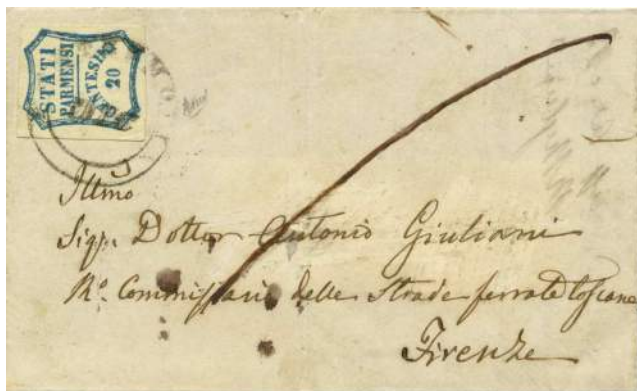 STATI
PARMENSI
CENTESIMI
20
Illmo
Sigr. Dottor Antonio Giuliani
R.o Commissario delle Strade ferrate toscane
Firenze